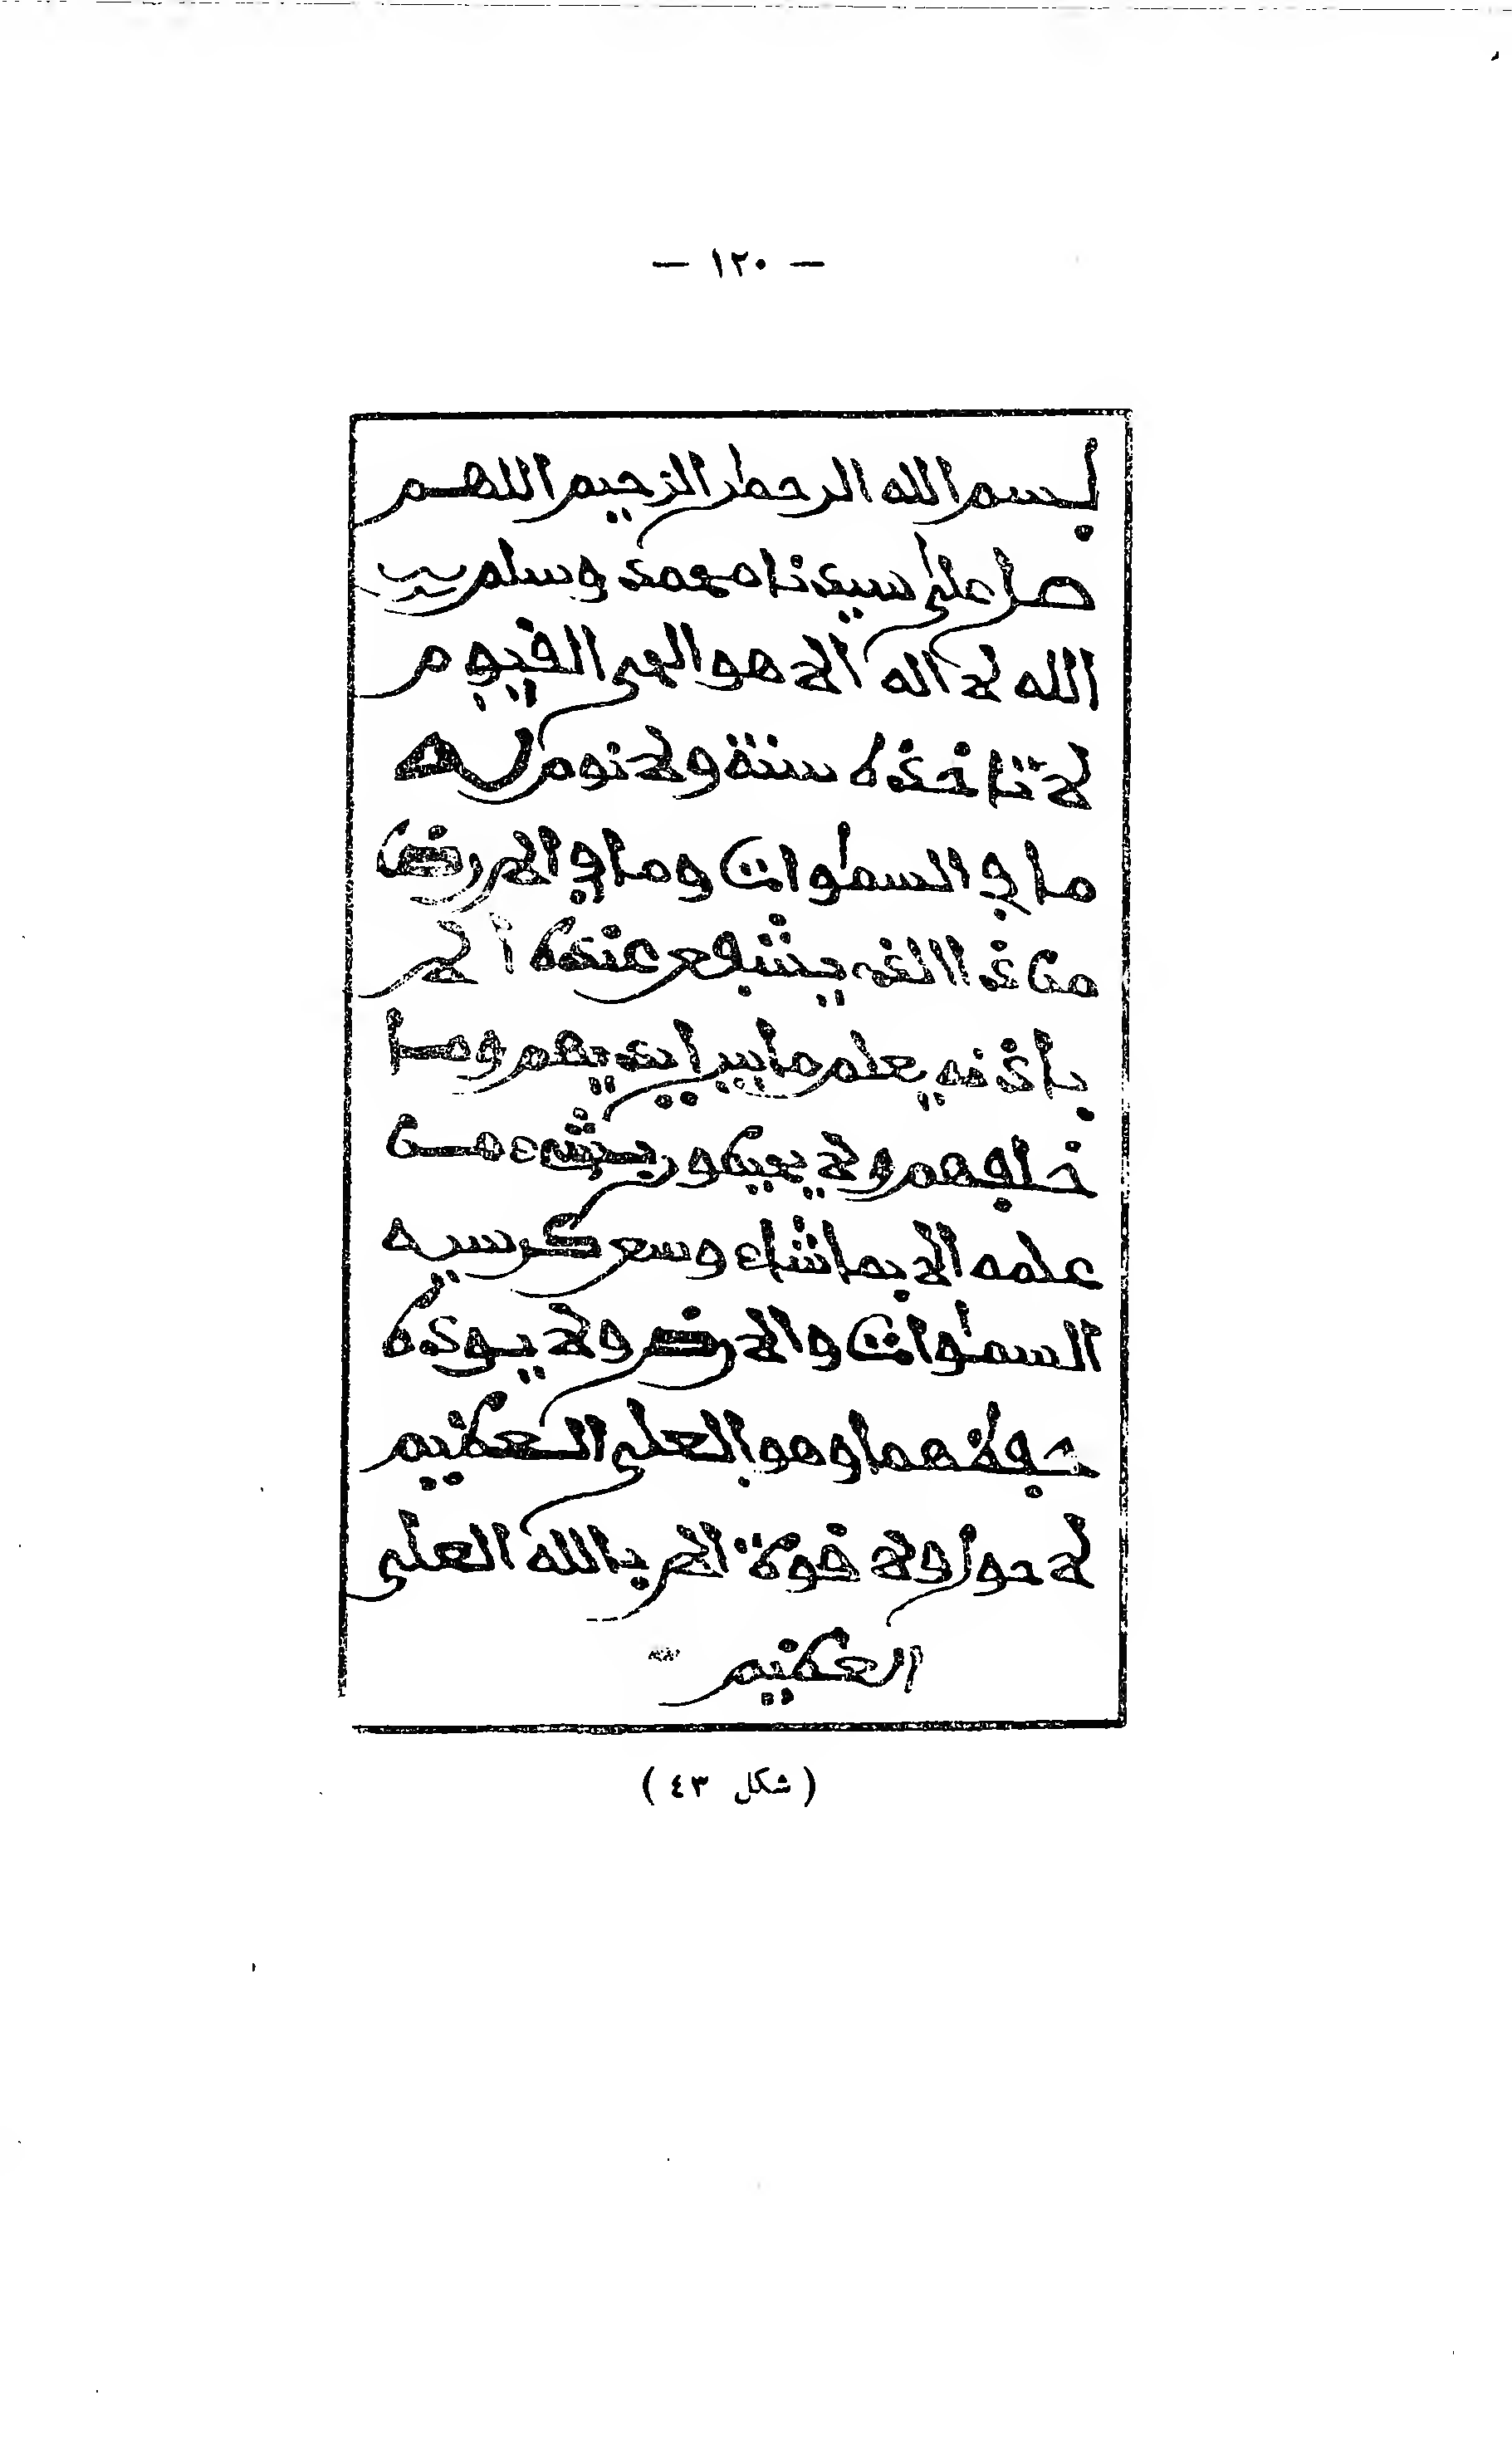 — ١٢٠ —
بسم الله الرحمن الرحيم اللهم
صل على سيدنا محمد وسلم
الله لا اله الا هو الحى القيوم
لا تاخذه سنة ولا نوم له
ما في السموات وما في الارض
من ذا الذى يشفع عنده الا
باذنه يعلم ما بين ايديهم وما
خلفهم ولا يحيطون بشىء من
علمه الا بما شاء وسع كرسيه
السموات والارض ولا يوده
حفظهما وهو العلى العظيم
لا حول ولا قوة الا بالله العلى
العظيم
( شكل ٤٣ )